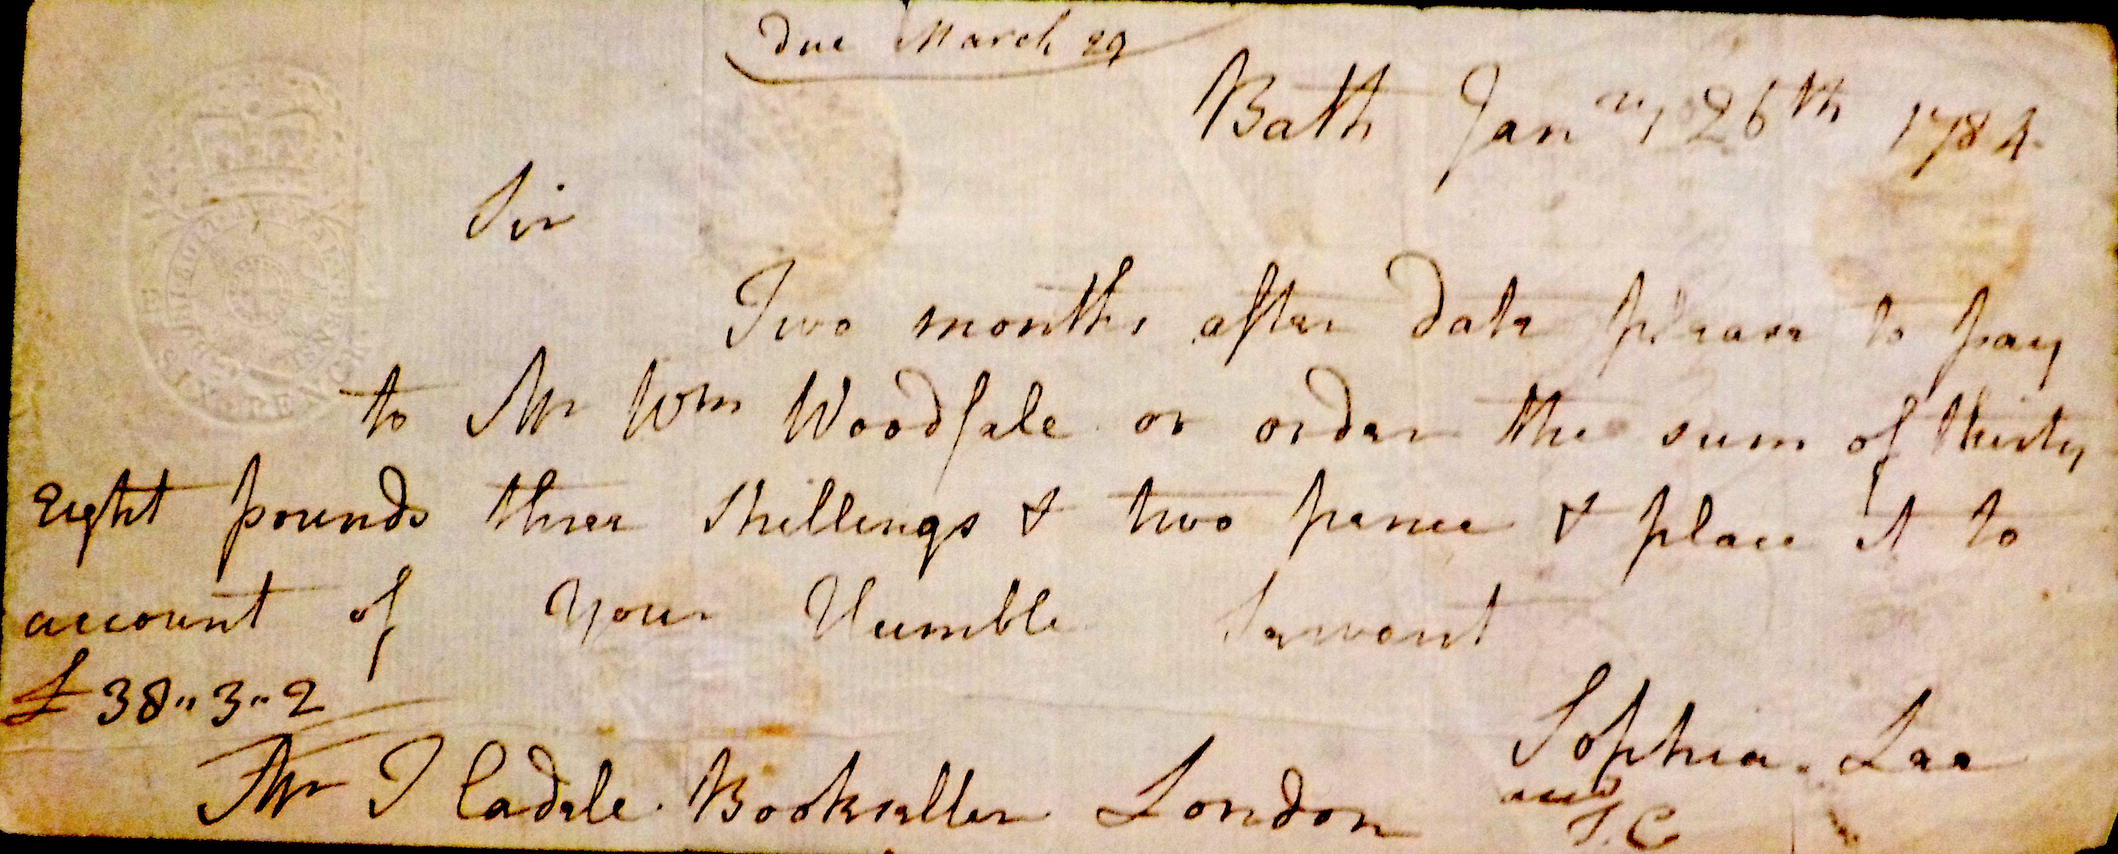 due March 29
Bath Jan ry 26th 1784
Sir
Two months after date please to pay
to Mr Wm Woodfale or order the sum of thirty
Eight pounds three shillings & two pence & place it to
account of your Humble Servant
£ 38 ״ 3 ״ 2
Sophia Lee
Mr T Cadele Bookseller London
SIX PENCE